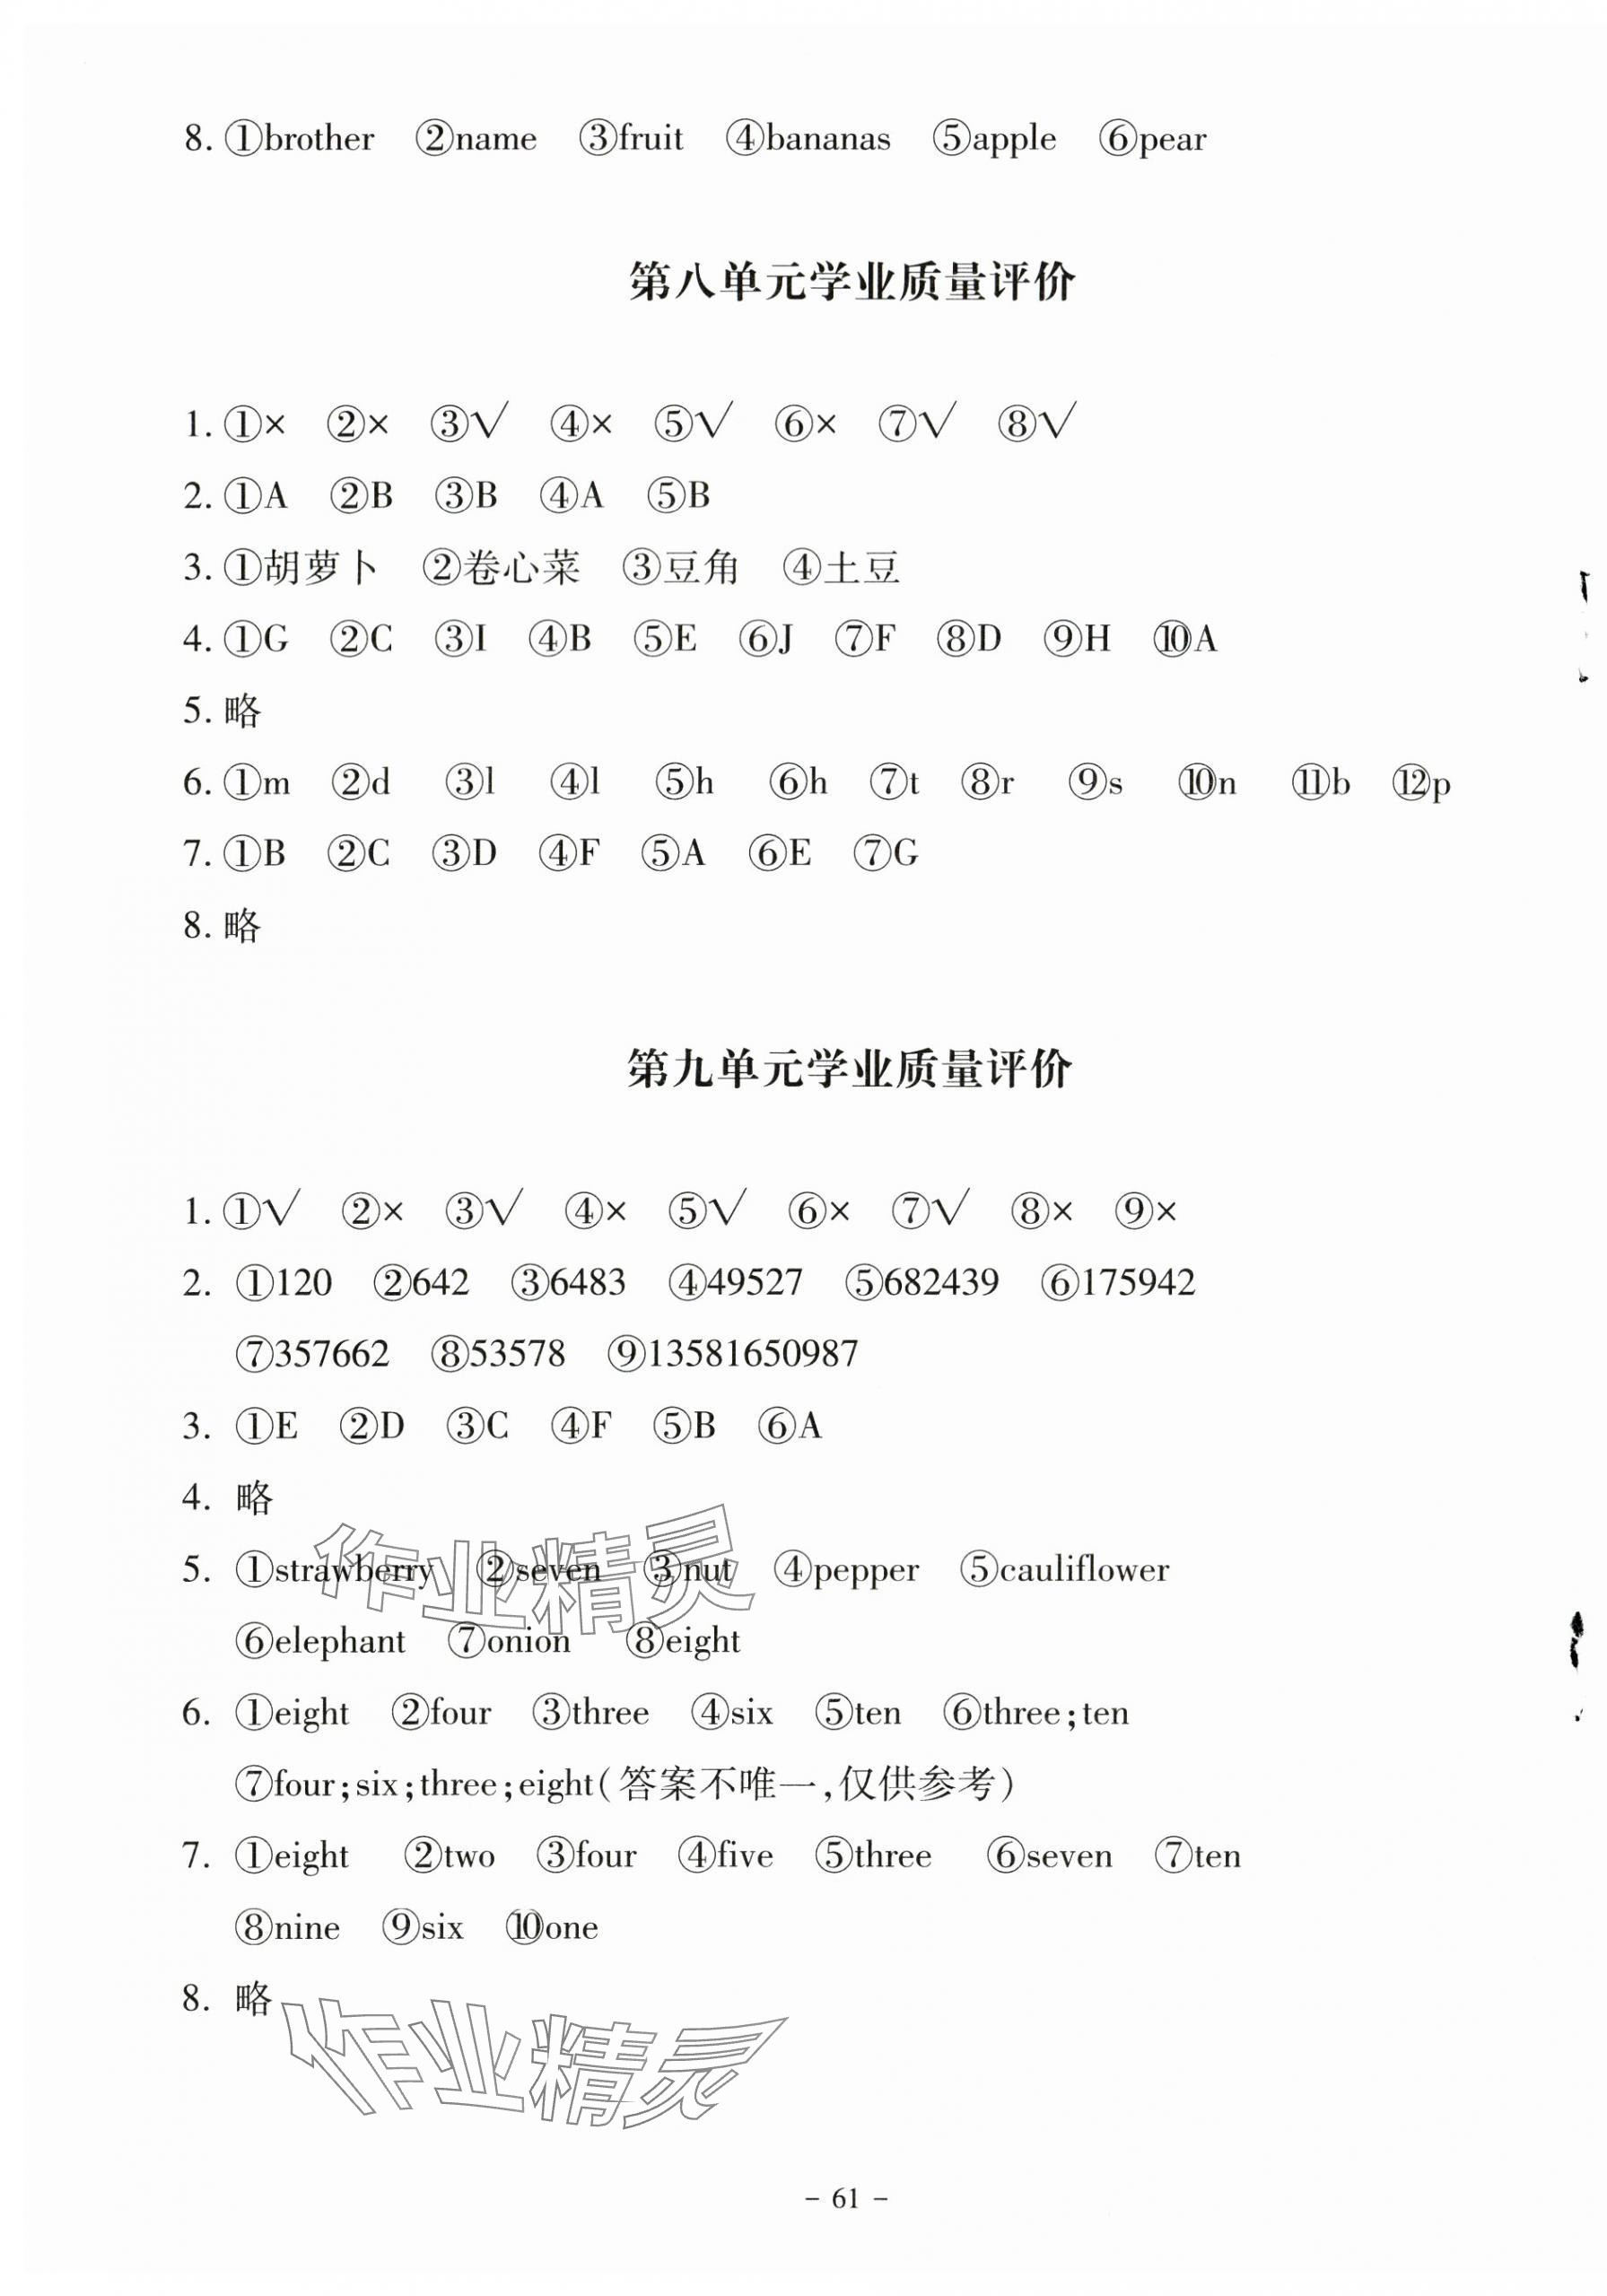 8. ①brother ②name ③fruit ④bananas ⑤apple ⑥pear
第八单元学业质量评价
1. ①× ②× ③√ ④× ⑤√ ⑥× ⑦√ ⑧√
2. ①A ②B ③B ④A ⑤B
3. ①胡萝卜 ②卷心菜 ③豆角 ④土豆
4. ①G ②C ③I ④B ⑤E ⑥J ⑦F ⑧D ⑨H ⑩A
5. 略
6. ①m ②d ③l ④l ⑤h ⑥h ⑦t ⑧r ⑨s ⑩n ⑪b ⑫p
7. ①B ②C ③D ④F ⑤A ⑥E ⑦G
8. 略
第九单元学业质量评价
1. ①√ ②× ③√ ④× ⑤√ ⑥× ⑦√ ⑧× ⑨×
2. ①120 ②642 ③6483 ④49527 ⑤682439 ⑥175942
⑦357662 ⑧53578 ⑨13581650987
3. ①E ②D ③C ④F ⑤B ⑥A
4. 略
5. ①strawberry ②seven ③nut ④pepper ⑤cauliflower
作业精灵
⑥elephant ⑦onion ⑧eight
6. ①eight ②four ③three ④six ⑤ten ⑥three;ten
⑦four;six;three;eight(答案不唯一,仅供参考)
7. ①eight ②two ③four ④five ⑤three ⑥seven ⑦ten
⑧nine ⑨six ⑩one
8. 略
作业精灵
- 61 -